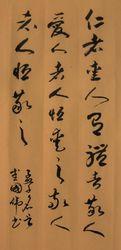 仁者愛人有禮者敬人
愛人者人恒愛之敬人
者人恒敬之
孟子名言